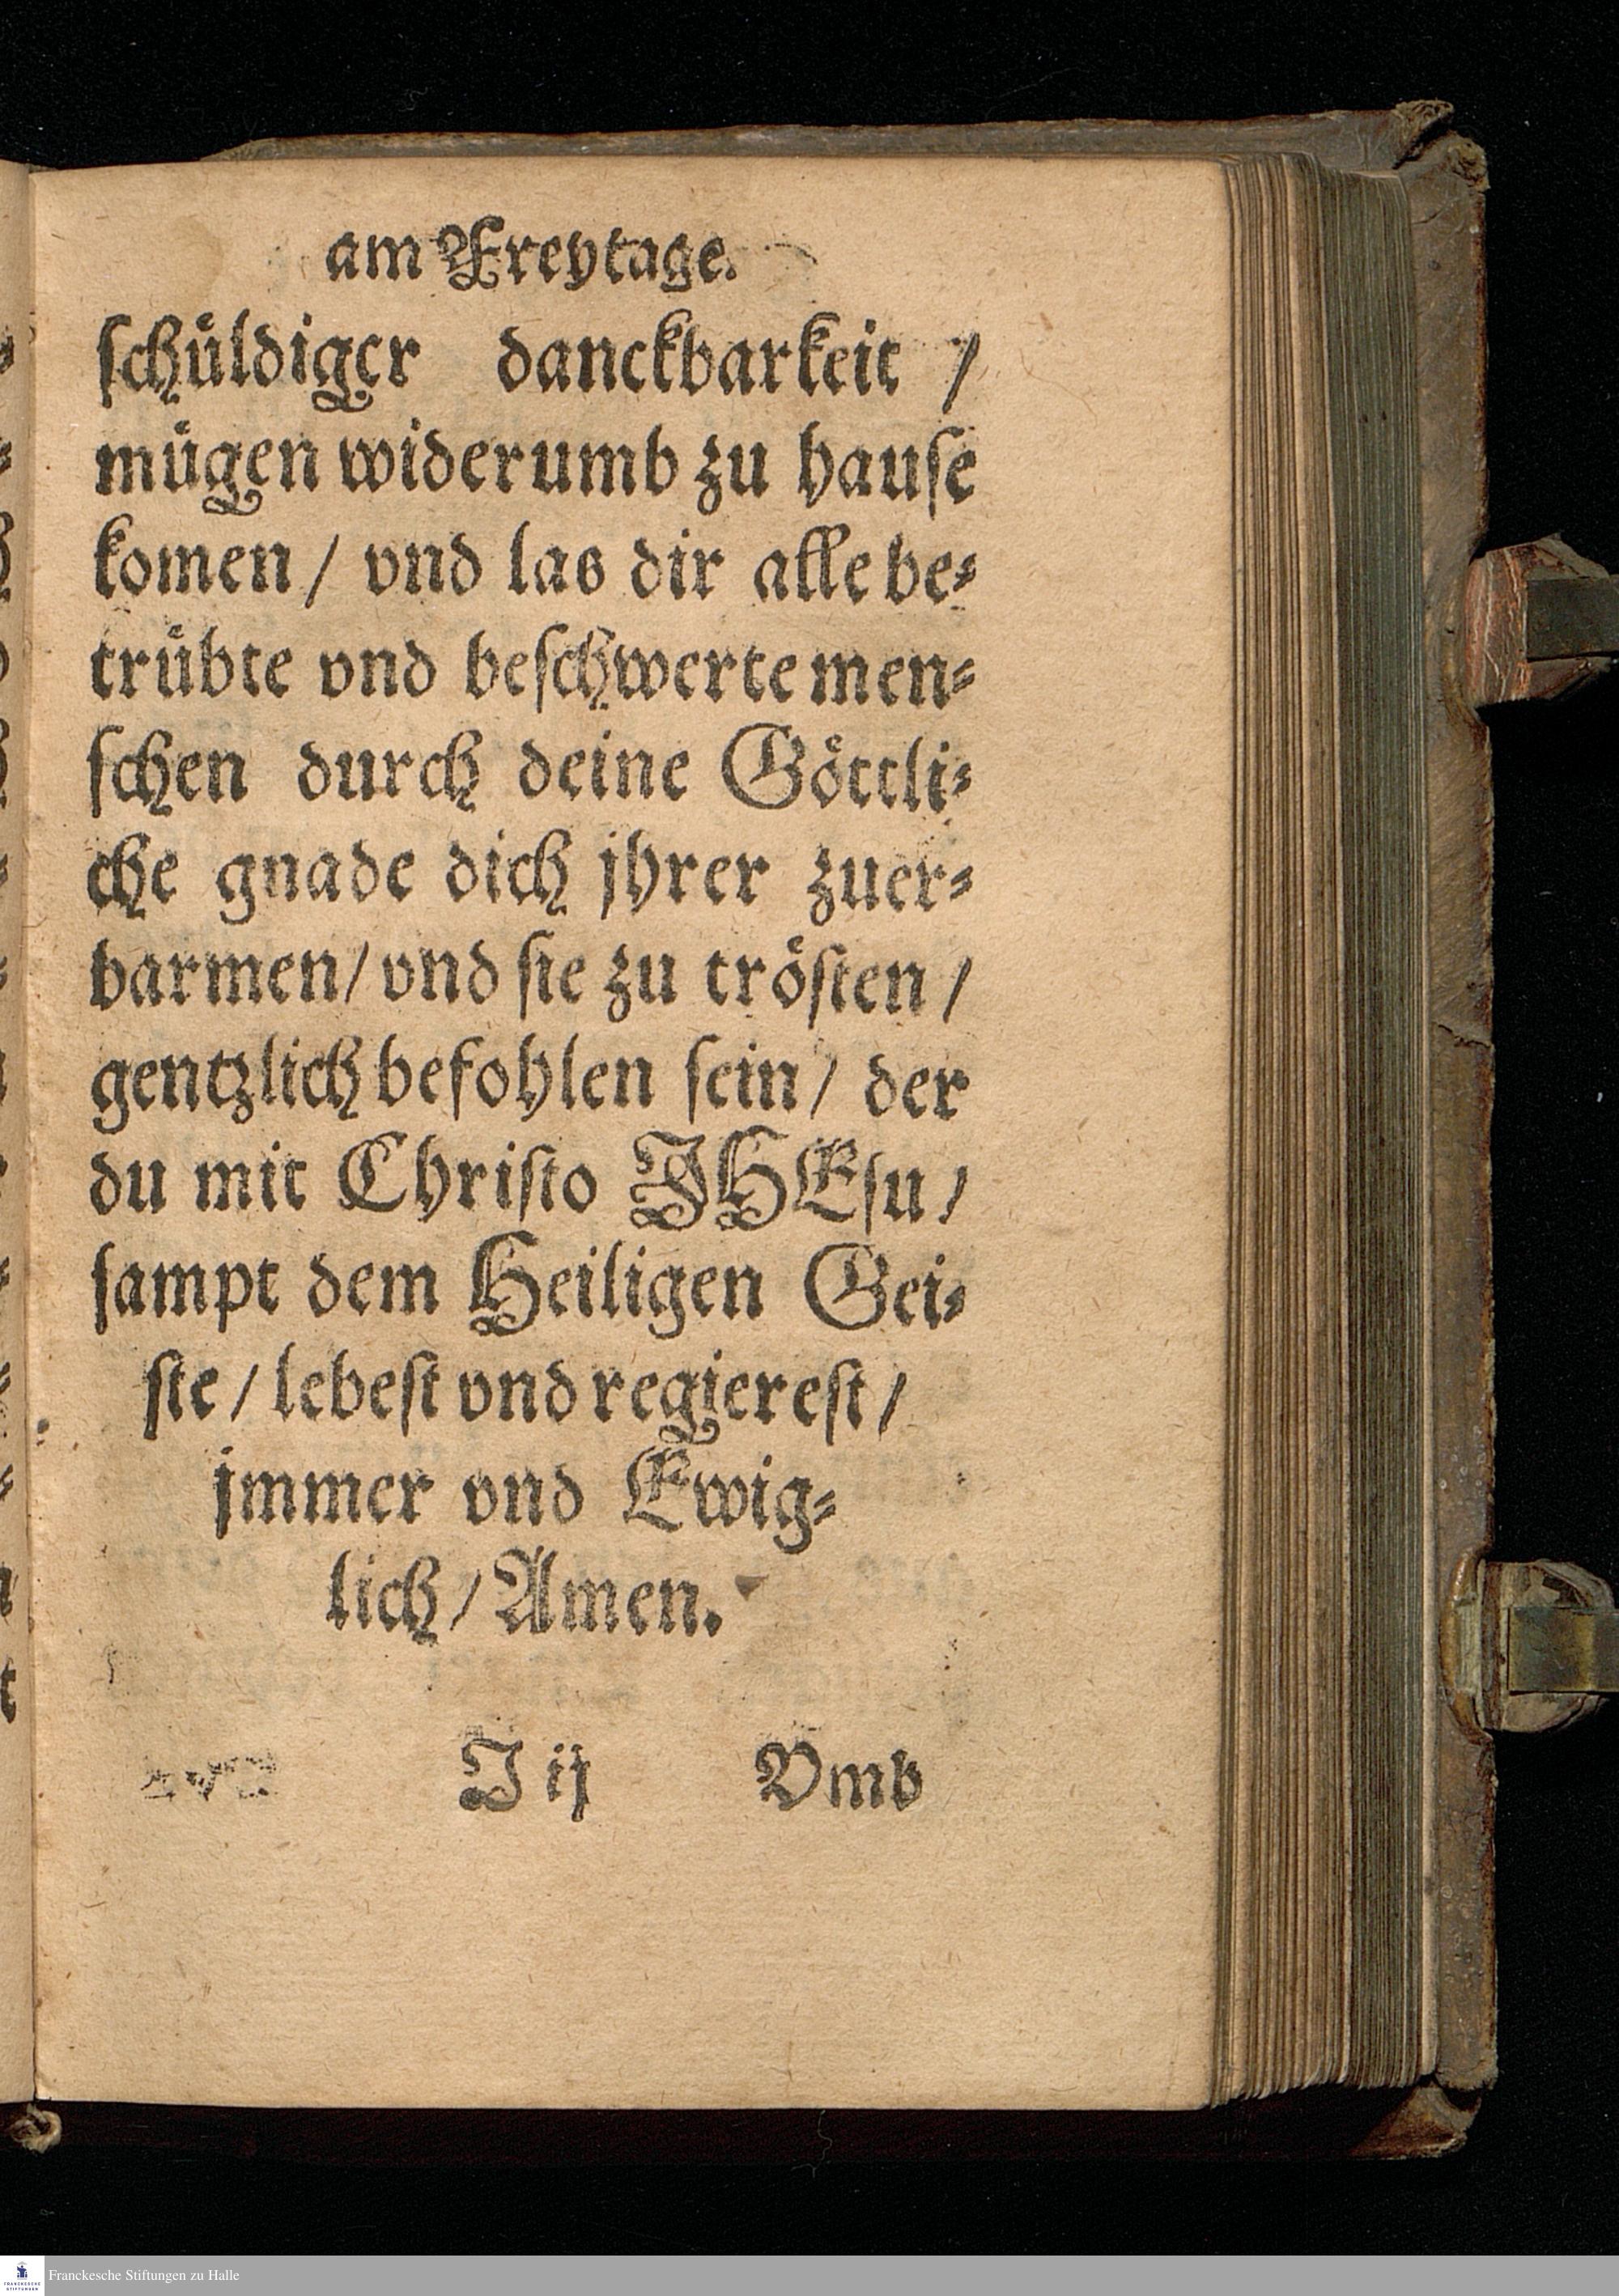 am Freytage.
ſchuͤldiger danckbarkeit /
muͤgen widerumb zu hauſe
komen / vnd las dir alle be⸗
truͤbte vnd beſchwerte men⸗
ſchen durch deine Goͤttli⸗
che gnade dich jhrer zuer⸗
barmen / vnd ſie zu troͤſten /
gentzlich befohlen ſein / der
du mit Chriſto JHEſu /
ſampt dem Heiligen Gei⸗
ſte / lebeſt vnd regiereſt /
jmmer vnd Ewig⸗
lich / Amen.
J ij Vmb
Franckesche Stiftungen zu Halle